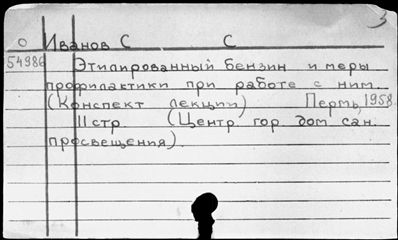 3
О Иванов С С
54986 Этилированный бензин и меры
профилактики при работе с ним.
(Конспект лекции) Пермь, 1958
11стр (Центр гор дом сан.
просвещения).